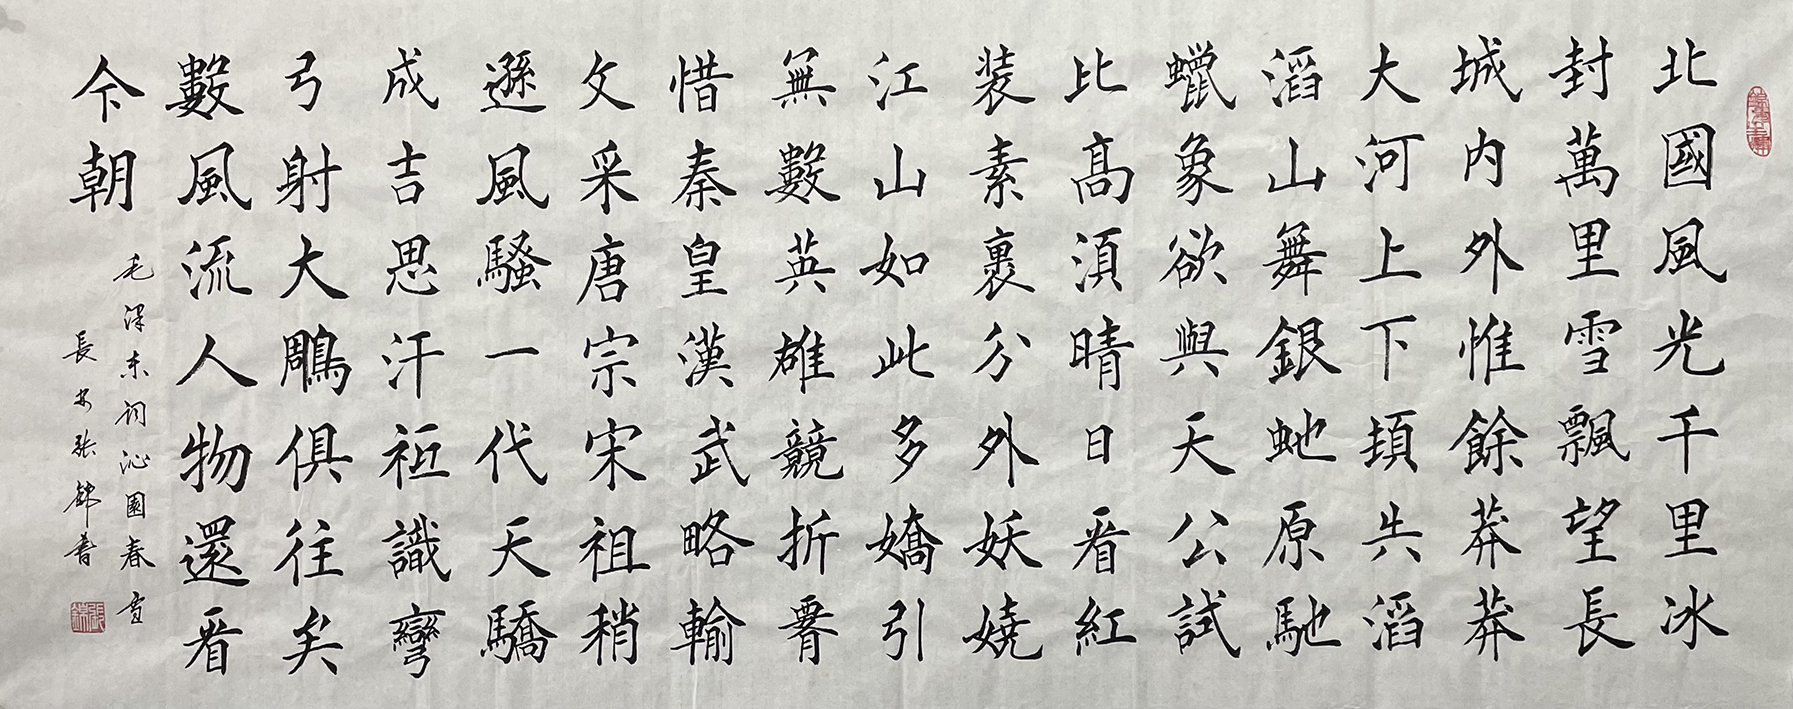 北國風光千里冰
封萬里雪飄望長
城内外惟餘莽莽
大河上下頓失滔
滔山舞銀虵原馳
蠟象欲與天公試
比高須晴日看紅
装素裹分外妖嬈
江山如此多嬌引
無數英雄競折腰
惜秦皇漢武略輸
文采唐宗宋祖稍
遜風騷一代天驕
成吉思汗祗識彎
弓射大鵰俱往矣
數風流人物還看
今朝
毛澤东詞沁園春雪
長安張錦普